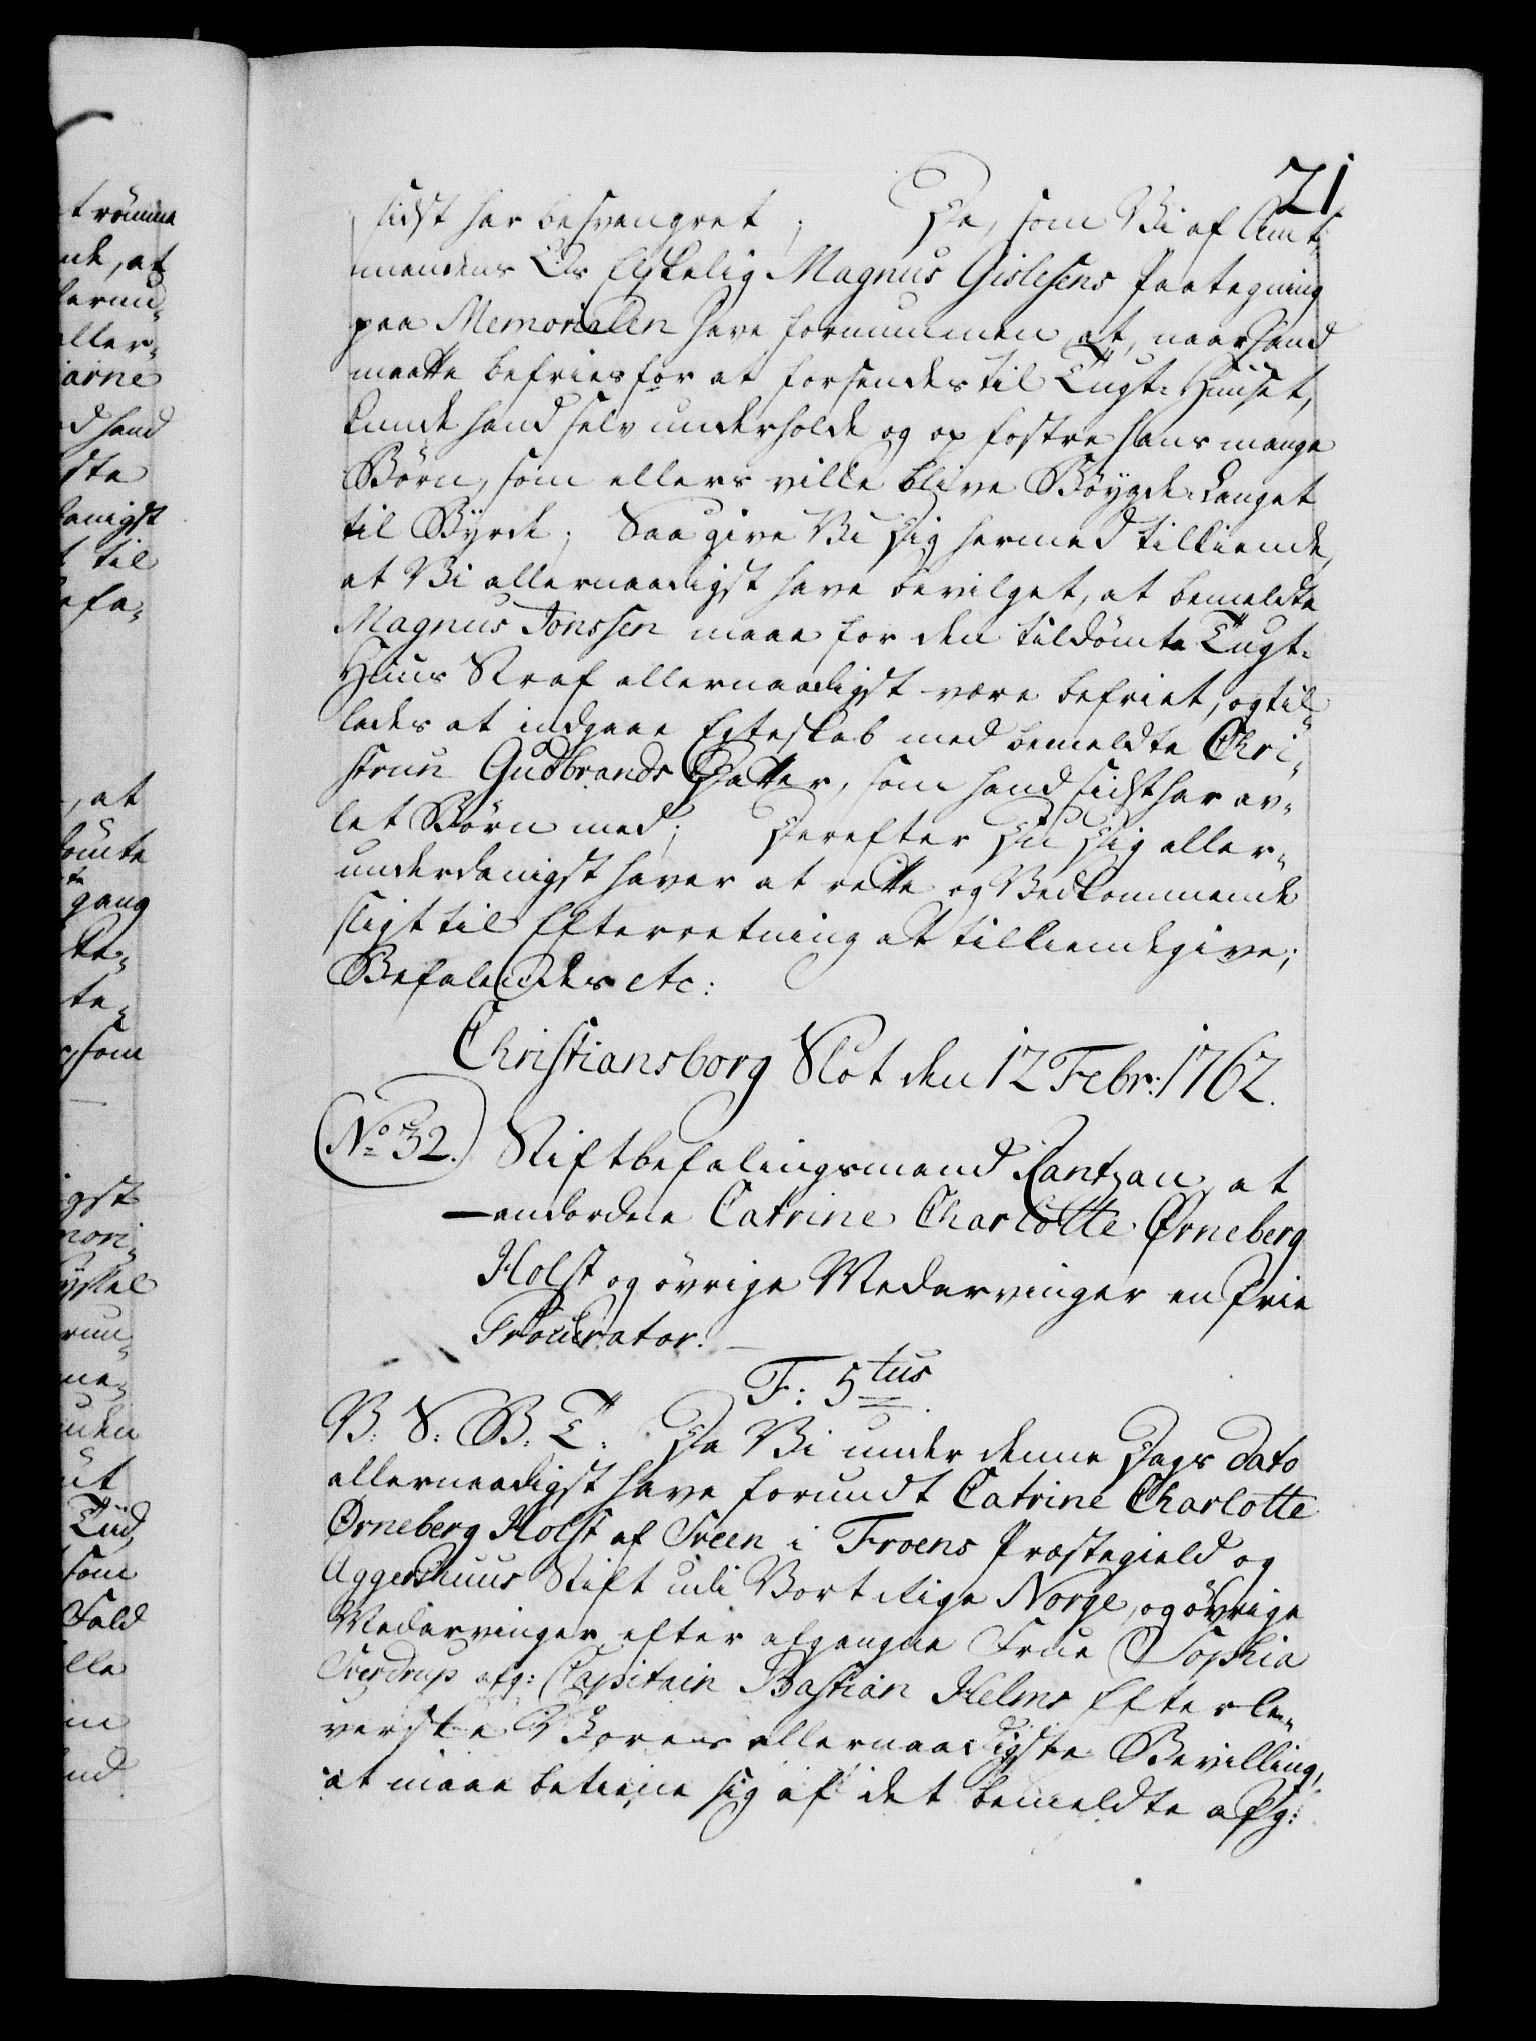 21
sidst har besvangret; Da, som Vi af Amt-
mandens Os Elskelig Magnus Gislesens Paategning
paa Memorialen have fornummen at, naar hand
maatte befries for at forsendes til Tugt-Huuset,
kunde hand selv underholde og op fostre hans mange
Börn, som ellers ville blive Böygde-Lauget
til Byrde; Saa give Vi Dig hermed tilkiende,
at Vi allernaadigst have bevilget, at bemeldte
Magnus Jonssen maae for den tildömte Tugt-
Huus Straf allernaadigst være befriet, og til-
lades at indgaae Egteskab med bemeldte Chri-
strun Gudbrands Datter, som hand sidst har av-
let Börn med; Derefter Du Dig aller-
underdanigst haver at rette og Vedkommende
sligt til Efterretning at tilkiendegive;
Befalendes etc:
Christiansborg Slot den 12 Febr: 1762.
No 32. Stiftbefalingsmand Rantzau, at
andordne Catrine Charlotte Ørneberg
Holst og övrige Medarvinger en Frie
Procurator.
F: 5tus
V: S: B: T: Da Vi under denne Dags Dato
allernaadigst have forundt Catrine Charlotte
Ørneberg Holst af Steen i Froens Præstegield og
Aggershuus Stift udi Vort Rige Norge, og övrige
Medarvinger efter afgangne Frue Sophia
Sverdrup afg: Capitain Bastian Helms Efterle-
verske Vores allernaadigste Bevilling,
at maae betiene sig af det bemeldte afg: